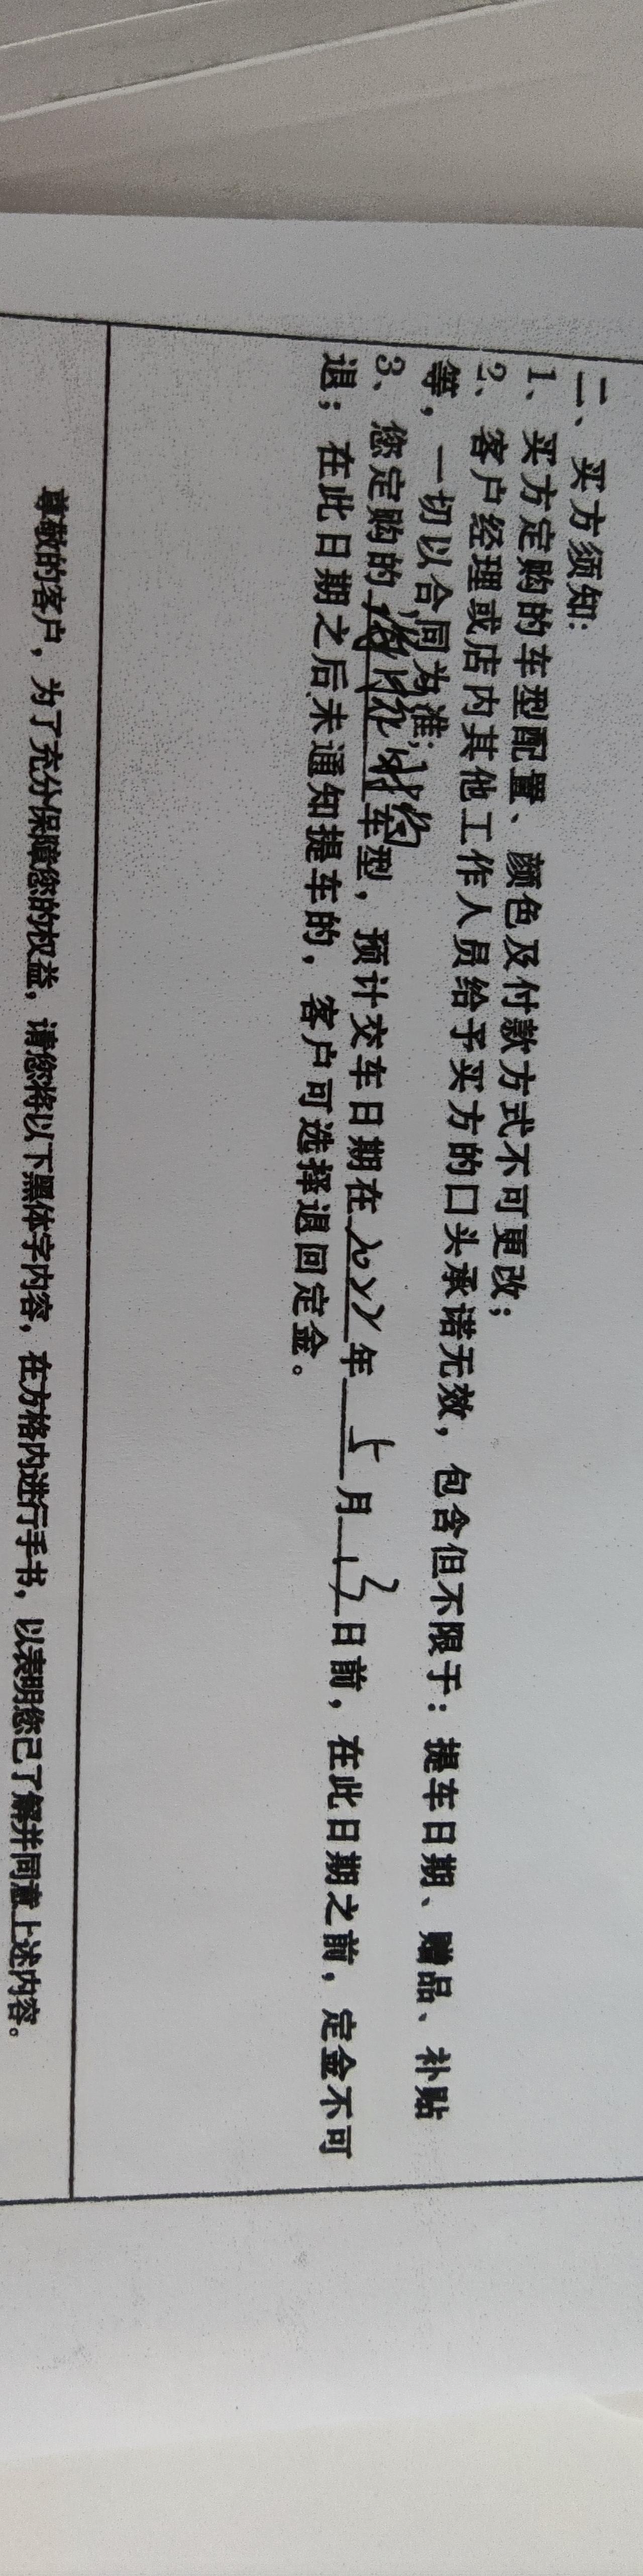 二、买方须知:
1、买方定购的车型配置、颜色及付款方式不可更改;
2、客户经理或店内其他工作人员给予买方的口头承诺无效,包含但不限于:提车日期、赠品、补贴
等,一切以合同为准;
3、您定购的车型,预计交车日期在202年5月13日前,在此日期之前,定金不可
退;在此日期之后未通知提车的,客户可选择退回定金。
尊敬的客户,为了充分保障您的权益,请您将以下黑体字内容,在方格内进行手书,以表明您已了解并同意上述内容。